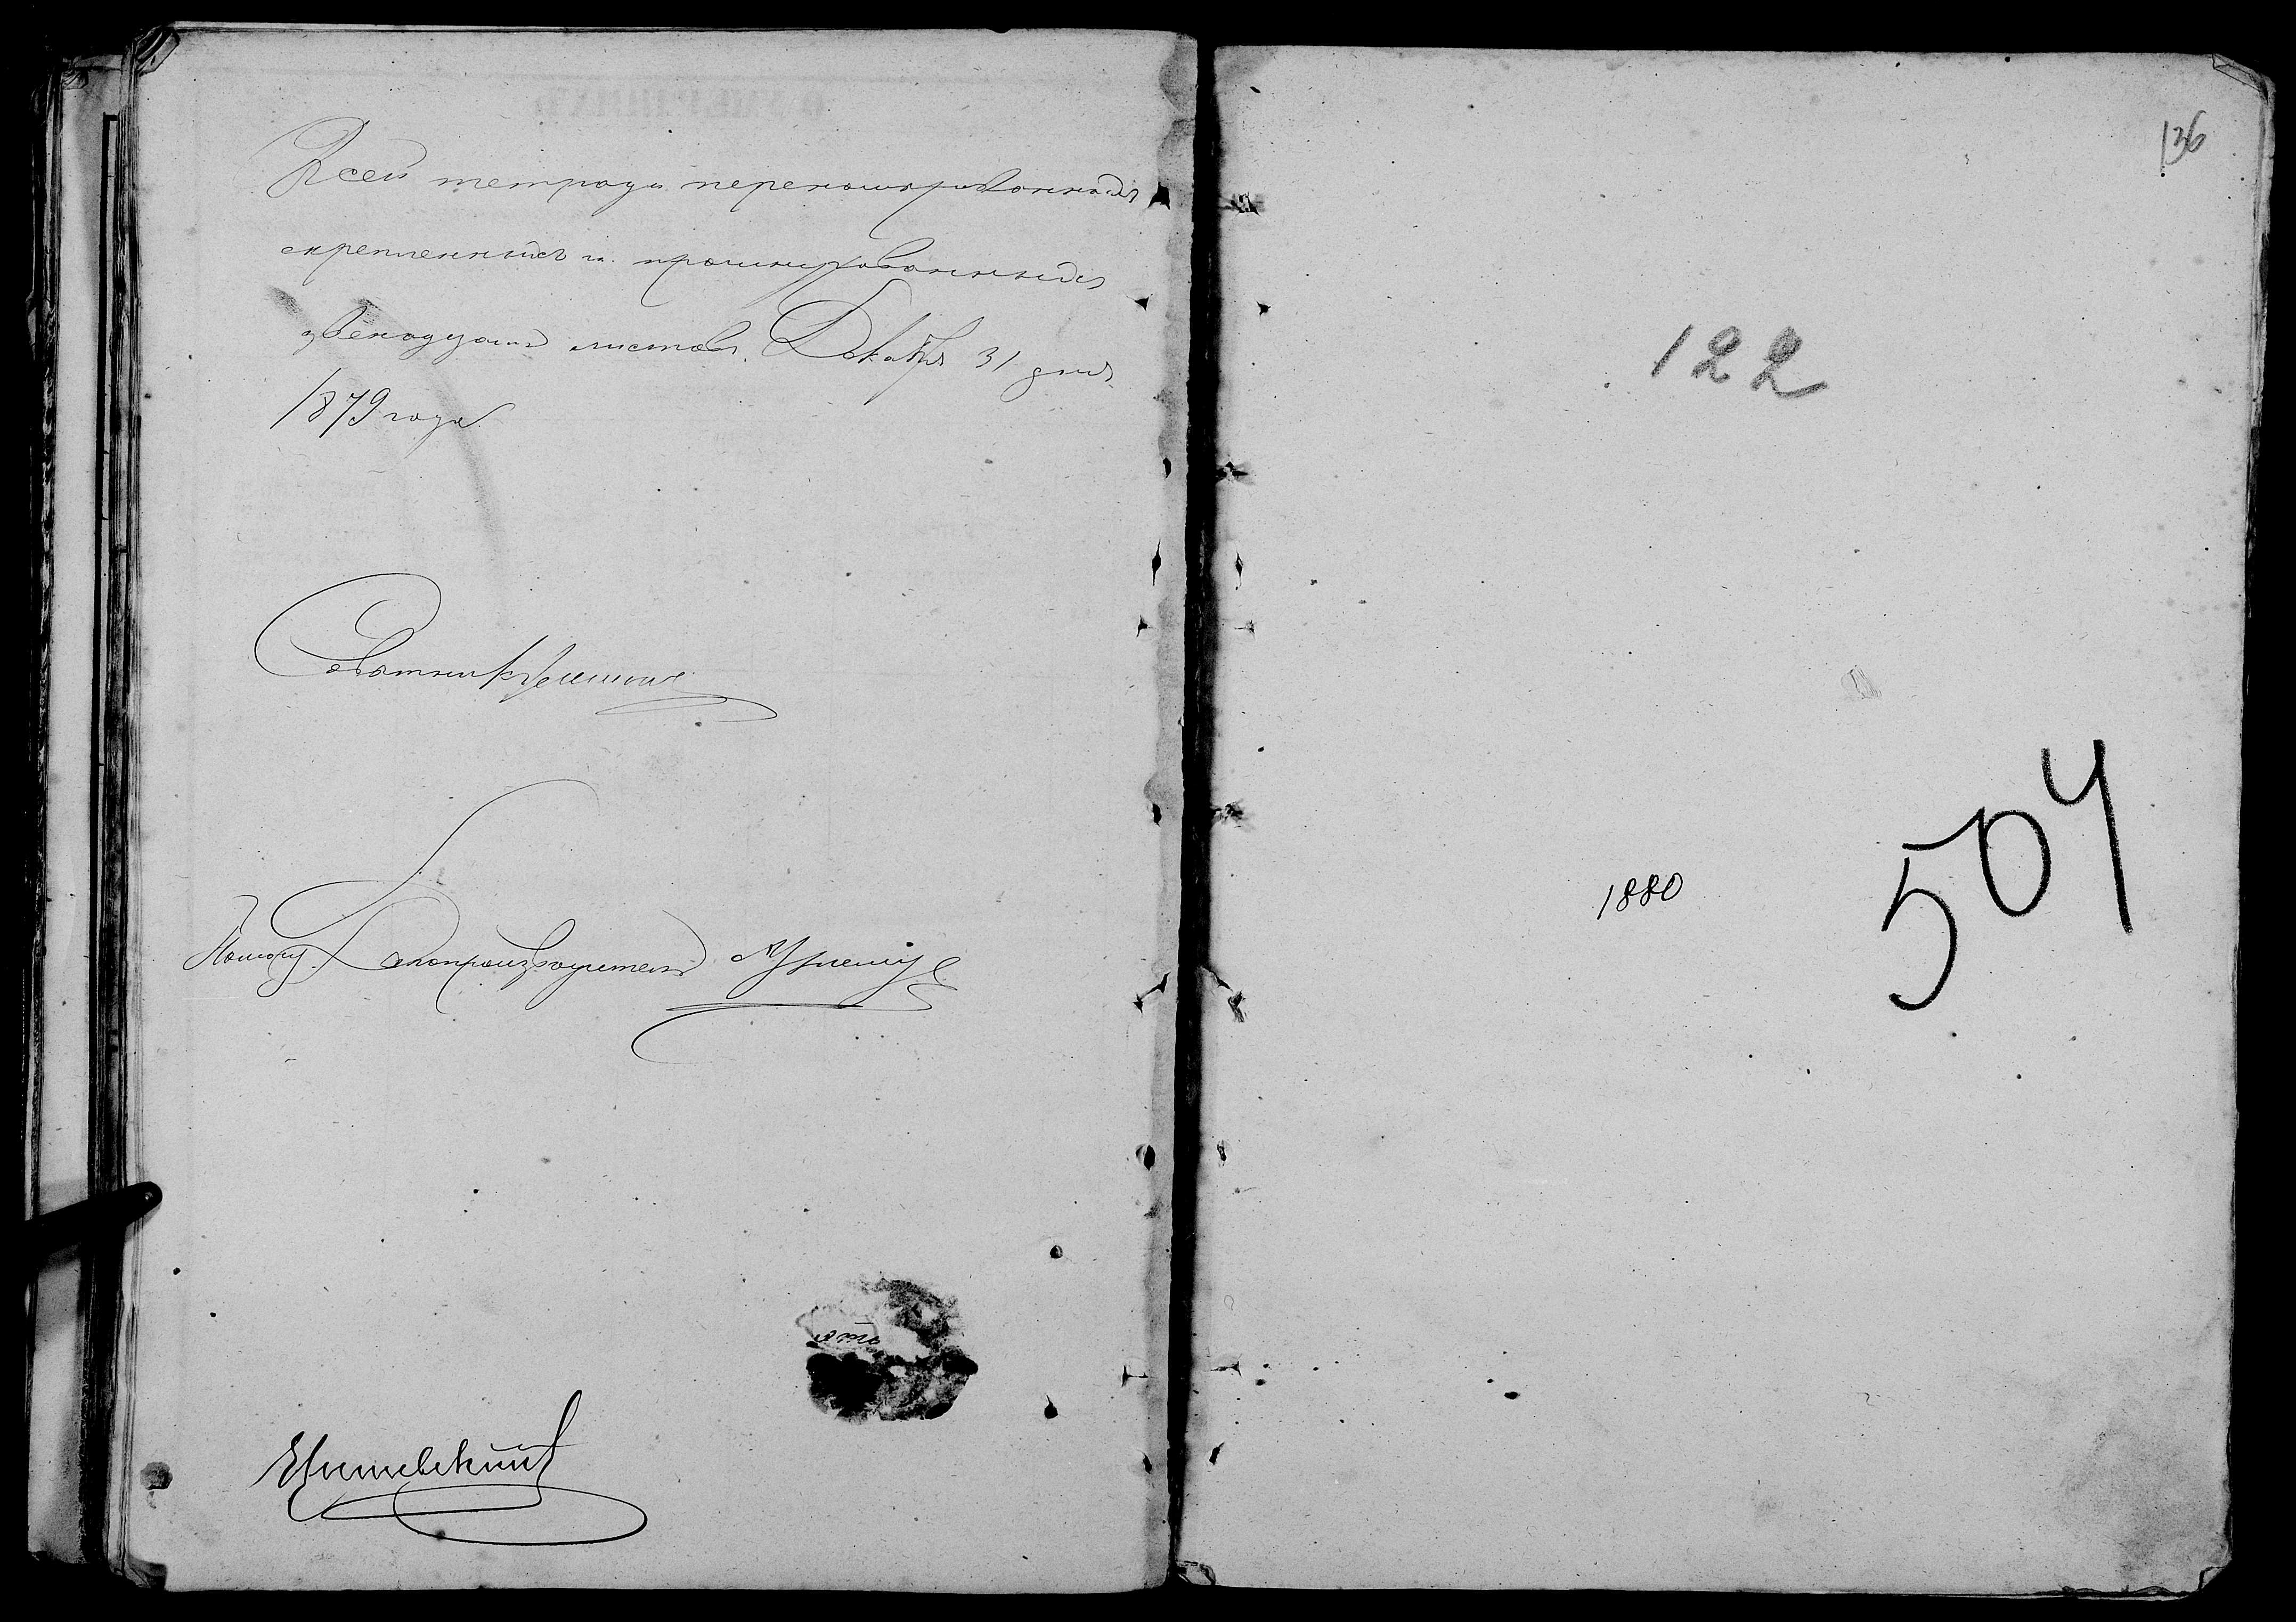 Всей тетради перенамерованныхъ
скрепленныхъ и прошнурованныхъ
двенадцать листовъ. Декабря 31 дня
1879 года
Советникъ
Помощ. Делопроизводителя
136
122
504
1880